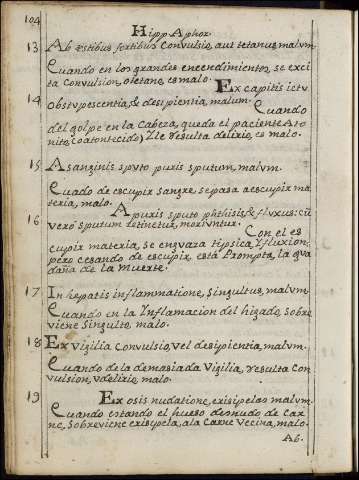 104
Hipp Aphor.
13 Ab æstibus fortibus Convulsio, aut tetanus, malum.
Cuando en los grandes encendimientos, se exci
ta Convulsion, otetano, es malo.
Ex capitis ictu
14 obstupescentia, & desipientia, malum.
Cuando
del golpe en la Cabeza, queda el paciente Ato
nito, (oatontecido) Ile resulta delirio, es malo.
15 A sanginis sputo puris sputum, malum.
Cuado de escupir sangre, sepasa aescupir ma
teria, malo.
16 A puris sputo phthisis, & fluxus: cũ
vero sputum detinetur, moriuntur.
Con el es
cupir materia, se engvaza tipsica, I fluxion,
pero cesando de escupir, està Prompta, la gua
daña de la Muerte.
17 In hepatis inflammatione, Singultus, malum.
Cuando en la Inflamacion del higado, Sobre
viene Singulto, malo.
18 Ex Vigilia Convulsio, vel desipientia, malum.
Cuando de la demasiada Vigilia, resulta Con
vulsion, udelirio, malo.
19 Ex osis nudatione, erisipelas malum.
Cuando estando el hueso desnudo de Car
ne, Sobreviene erisypela, ala Carne Vecina, malo.
Ab.